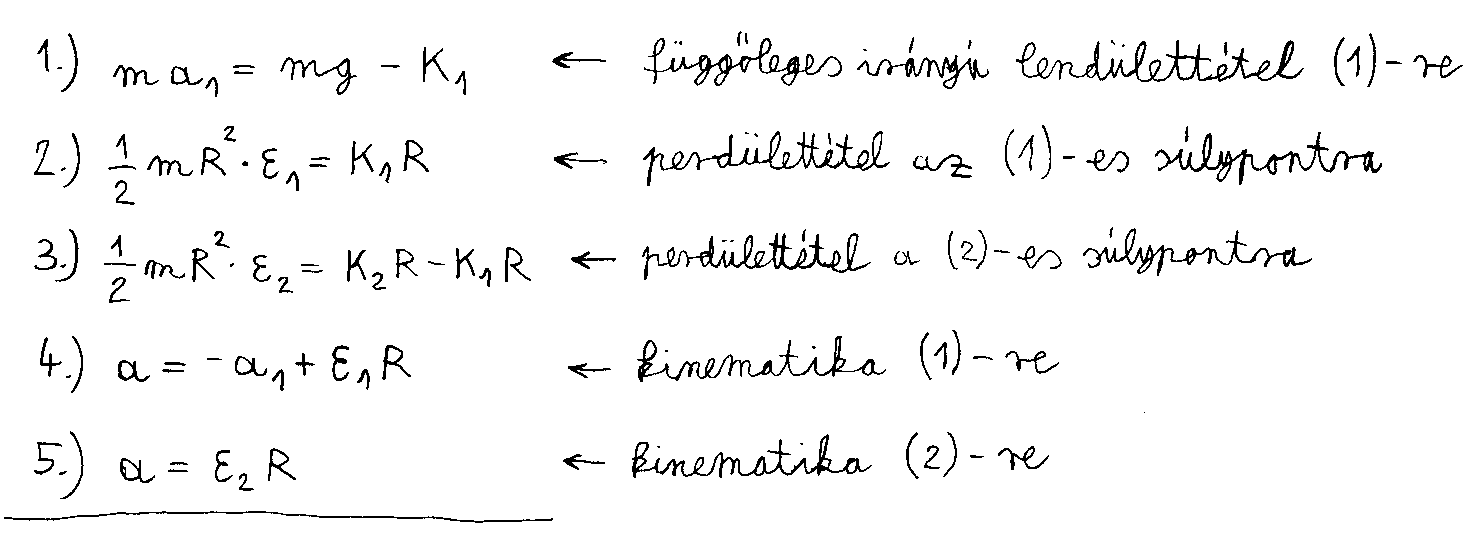 1.) m a₁ = mg - K₁ ← függőleges irányú lendülettétel (1)-re
2.) 1/2 mR²·ε₁ = K₁R ← perdülettétel az (1)-es súlypontra
3.) 1/2 mR²·ε₂ = K₂R - K₁R ← perdülettétel a (2)-es súlypontra
4.) a = -a₁ + ε₁R ← kinematika (1)-re
5.) a = ε₂R ← kinematika (2)-re